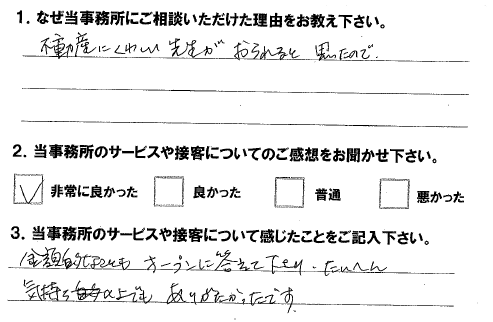 1. なぜ当事務所にご相談いただけた理由をお教え下さい。
不動産にくわしい先生がおられると思ったので.
2. 当事務所のサービスや接客についてのご感想をお聞かせ下さい。
非常に良かった 良かった 普通 悪かった
3. 当事務所のサービスや接客について感じたことをご記入下さい。
金額的なこともオープンに答えて下さり、たいへん
気持ちの上でもありがたかったです